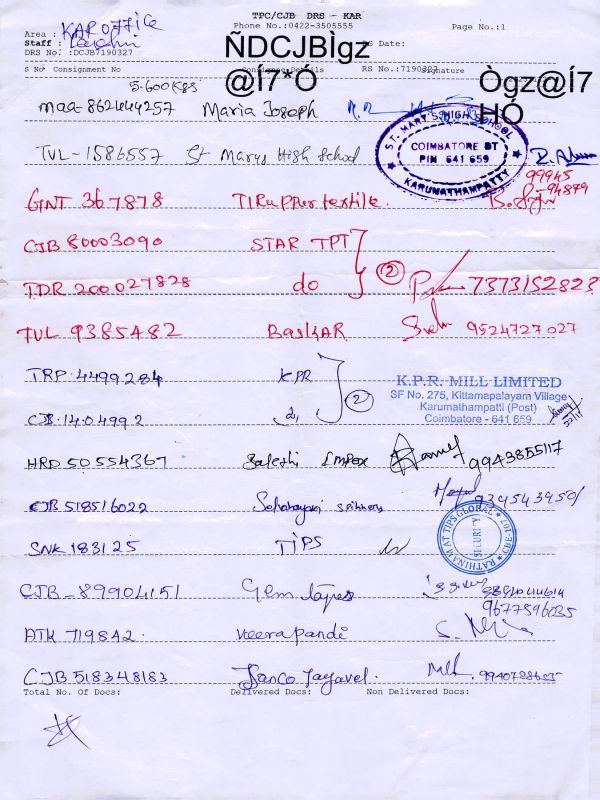 TPC/CJB DRS - KAR
Phone No.:0422-3505555
Page No.:1
Area : KAR OFFICE
Staff :
DRS No. :DCJB7190327
RS Date:
ÑDCJBÌgz
@Í7*Ó
S No Consignment No Consignee Details RS No.:7190327 Signature
Ògz@Í7
HÓ
5-600KGS
maa-862444257 Maria Joseph
TVL-1586557 St Marys High School
ST. MARY'S HIGH SCHOOL
COIMBATORE DT
PIN 641 659
KARUMATHAMPATTY
99945
-94879
GNT 367878 TIRuppur textile.
CJB 80003090 STAR TPT
TDR 200027828 do 2 7373152828
TVL 9385482 BASKAR 9524727027
TRP-4499284 KPR
2
K.P.R. MILL LIMITED
SF No. 275, Kittamapalayam Village
Karumathampatti (Post)
Coimbatore - 641 659
CJB-1404992
HRD 50554367 Impex 9943855117
CJB 518516022
RATHINAMAT TIPS GLOBAL
SECURITY
SNK 183125 TIPS
CJB-89904151 Gem tapes
9677596035
ATK 719842 veerapandi
CJB 518348183 Janco Jayavel.
Total No. Of Docs: Delivered Docs: Non Delivered Docs: